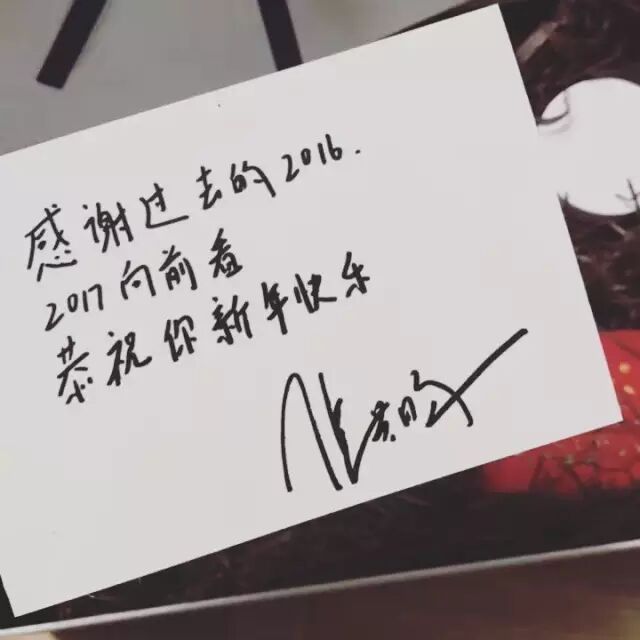 感谢过去的2016.
2017向前看
恭祝你新年快乐